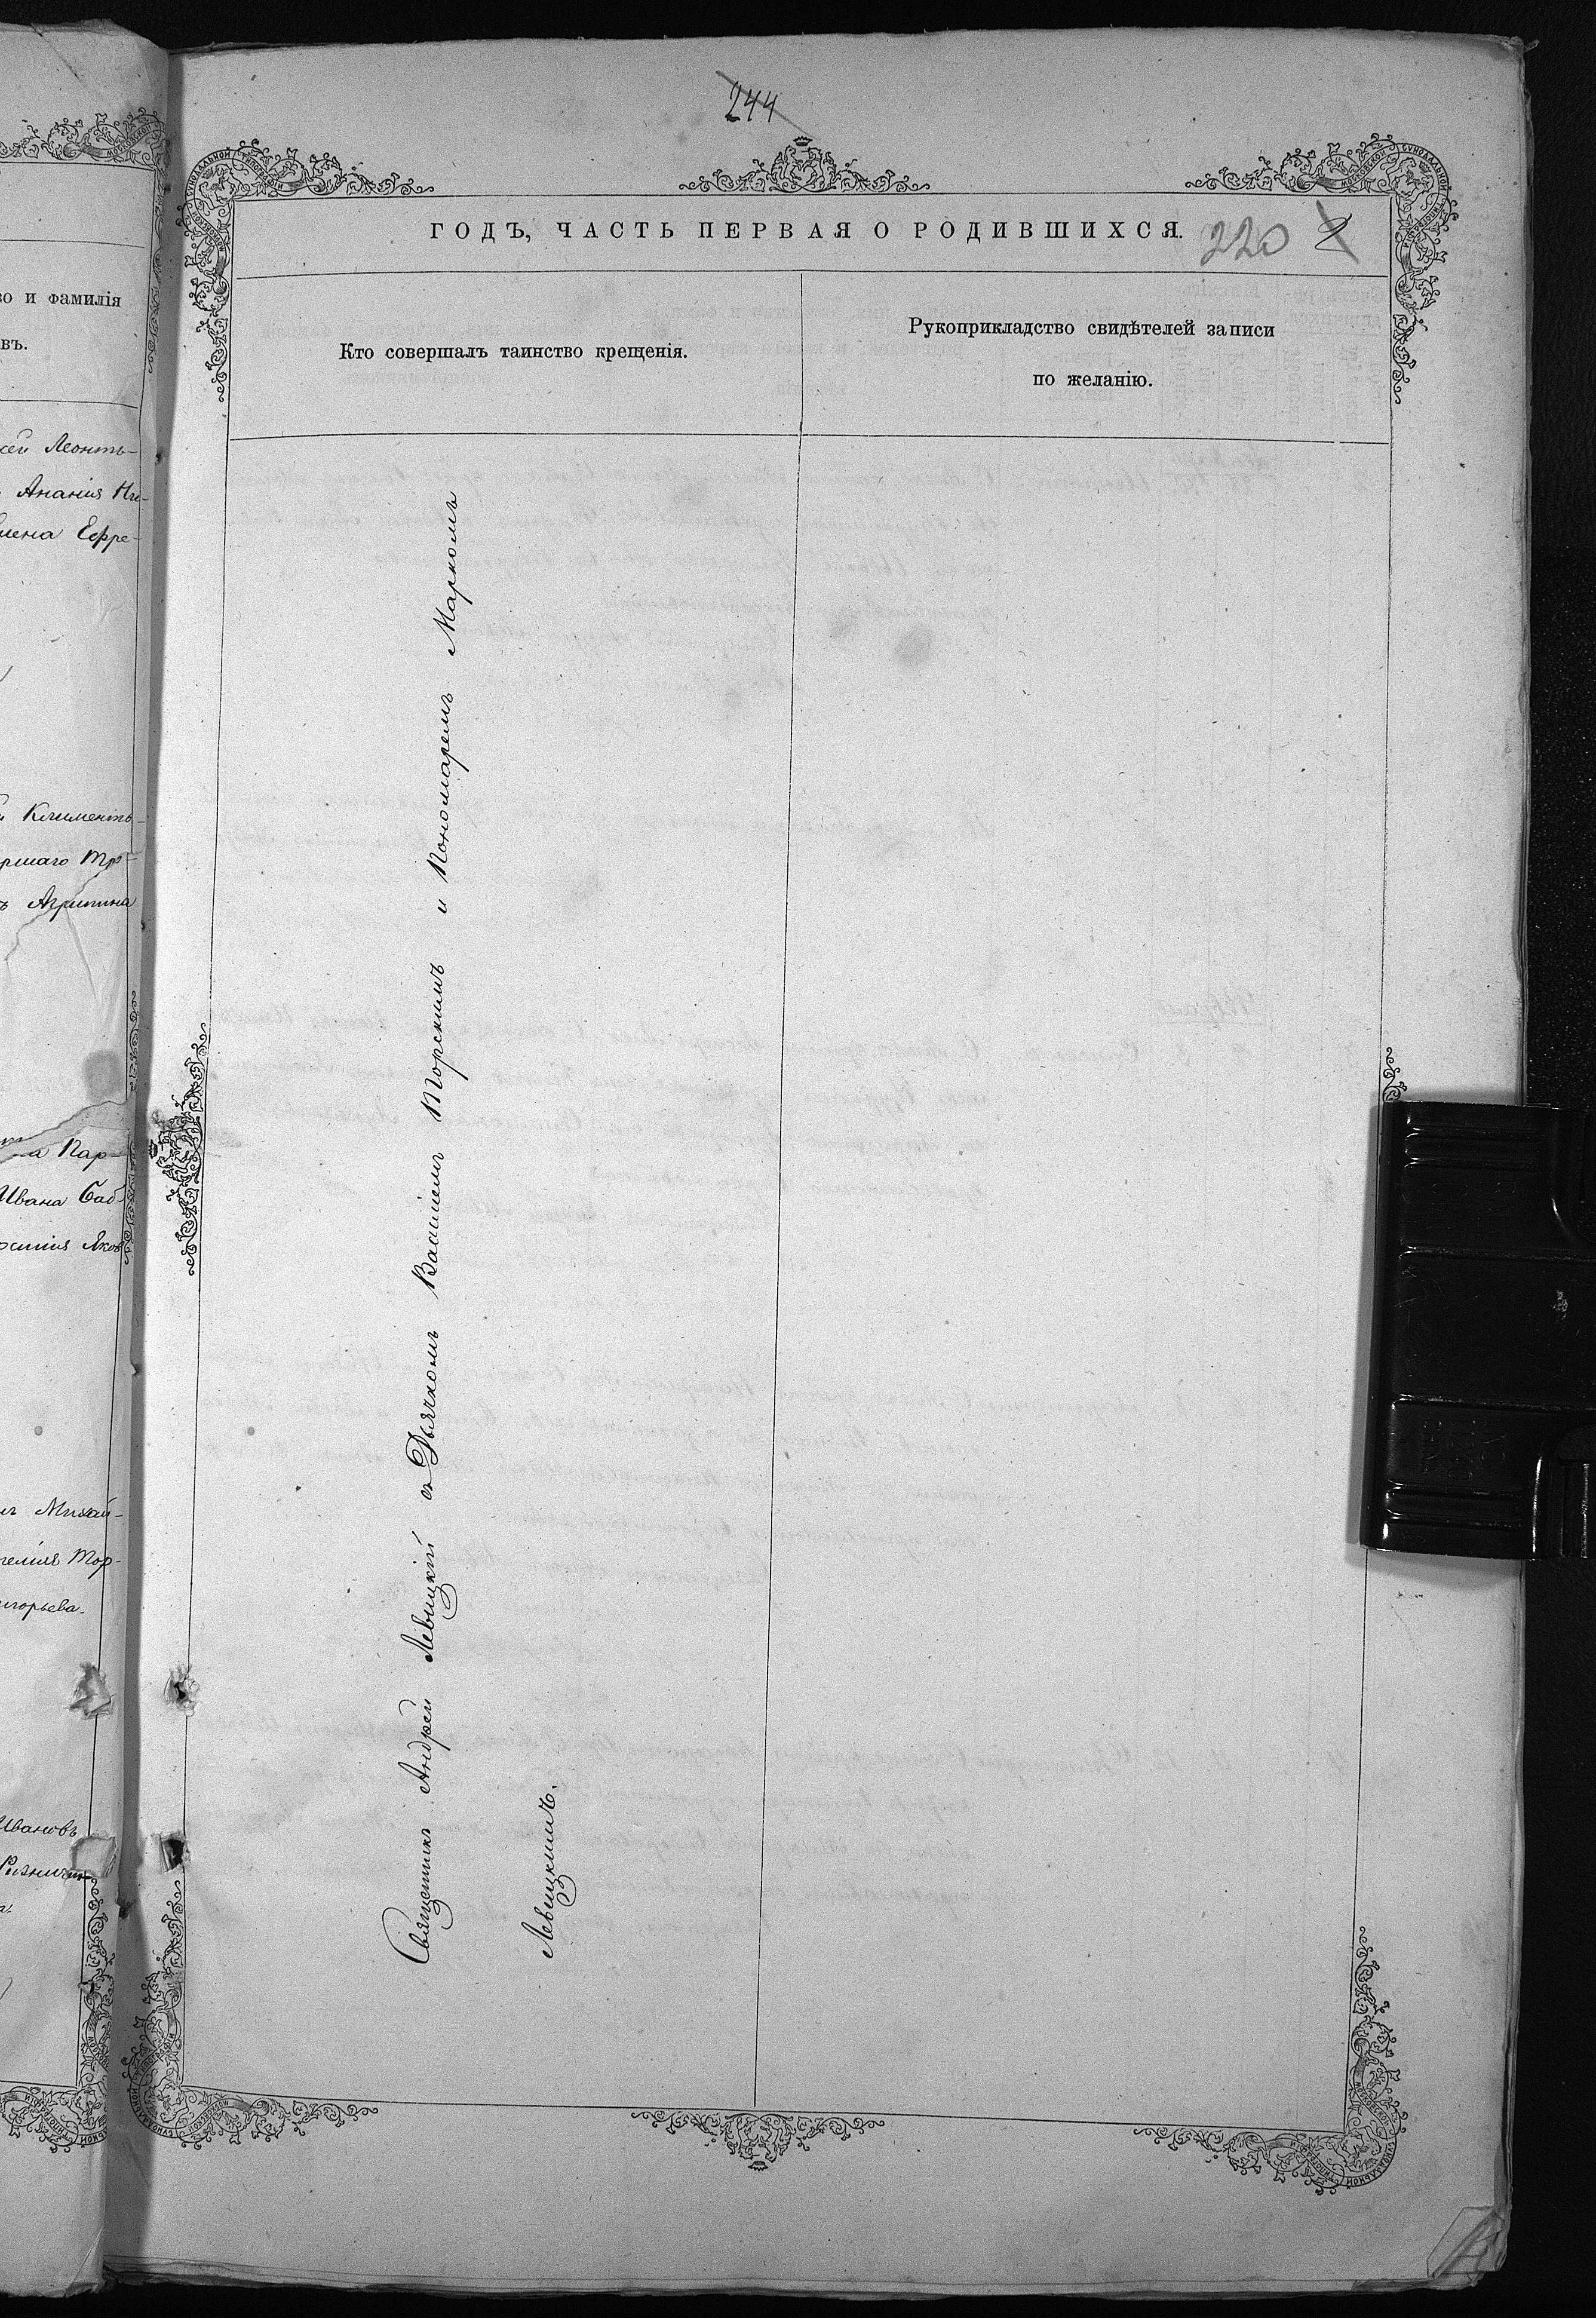 244
ГОДЪ, ЧАСТЬ ПЕРВАЯ О РОДИВШИХСЯ.
220 2
Кто совершалъ таинство крещенія.
Рукоприкладство свидѣтелей записи
по желанію.
Священникъ Андрей Левицкій съ Дьячкомъ Василіемъ Торскимъ и Пономаремъ Маркомъ
Левицкимъ.
о и фамилія
въ.
сей Леонть-
Ананія Ни-
лена Ефре-
Климентъ-
ршаго Тр-
ъ Агрипина
а Пар-
Ивана Баб-
Яков
Михай-
Тор-
игорьева.
Ивановъ